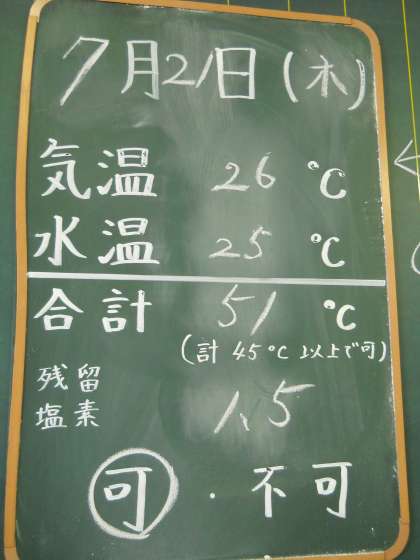 7月21日(木)
気温 26 ℃
水温 25 ℃
合計 51 ℃
(計 45℃ 以上で可)
残留
塩素 1.5
可・不可